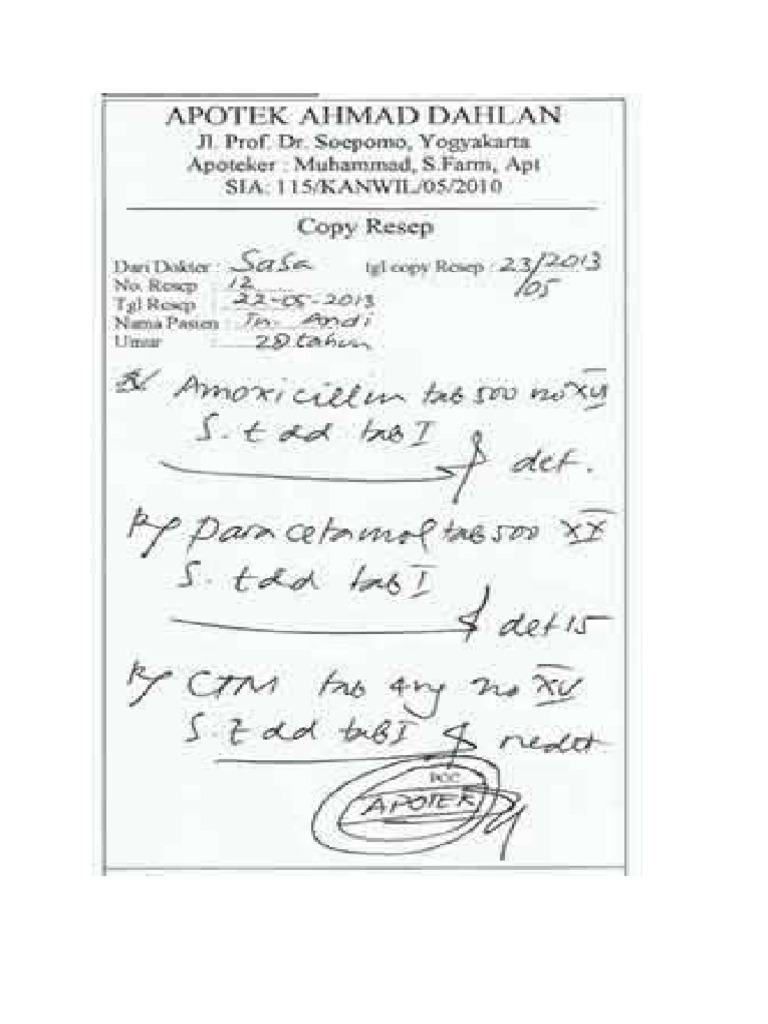 APOTEK AHMAD DAHLAN
Jl. Prof. Dr. Soepomo, Yogyakarta
Apoteker : Muhammad, S.Farm, Apt
SIA: 115/KANWIL/05/2010
Copy Resep
Dari Dokter : Sasa tgl copy Resep : 23/2013
No. Resep : 12 /05
Tgl Resep : 22-05-2013
Nama Pasien : Tn. Andi
Umur : 28 tahun
R/ Amoxicillin tab 500 no XV
S. t dd tab I
det.
R/ Paracetamol tab 500 XX
S. t dd tab I
det 15
R/ CTM tab 4mg no XV
S. t dd tab I nedet
PCC
APOTEK